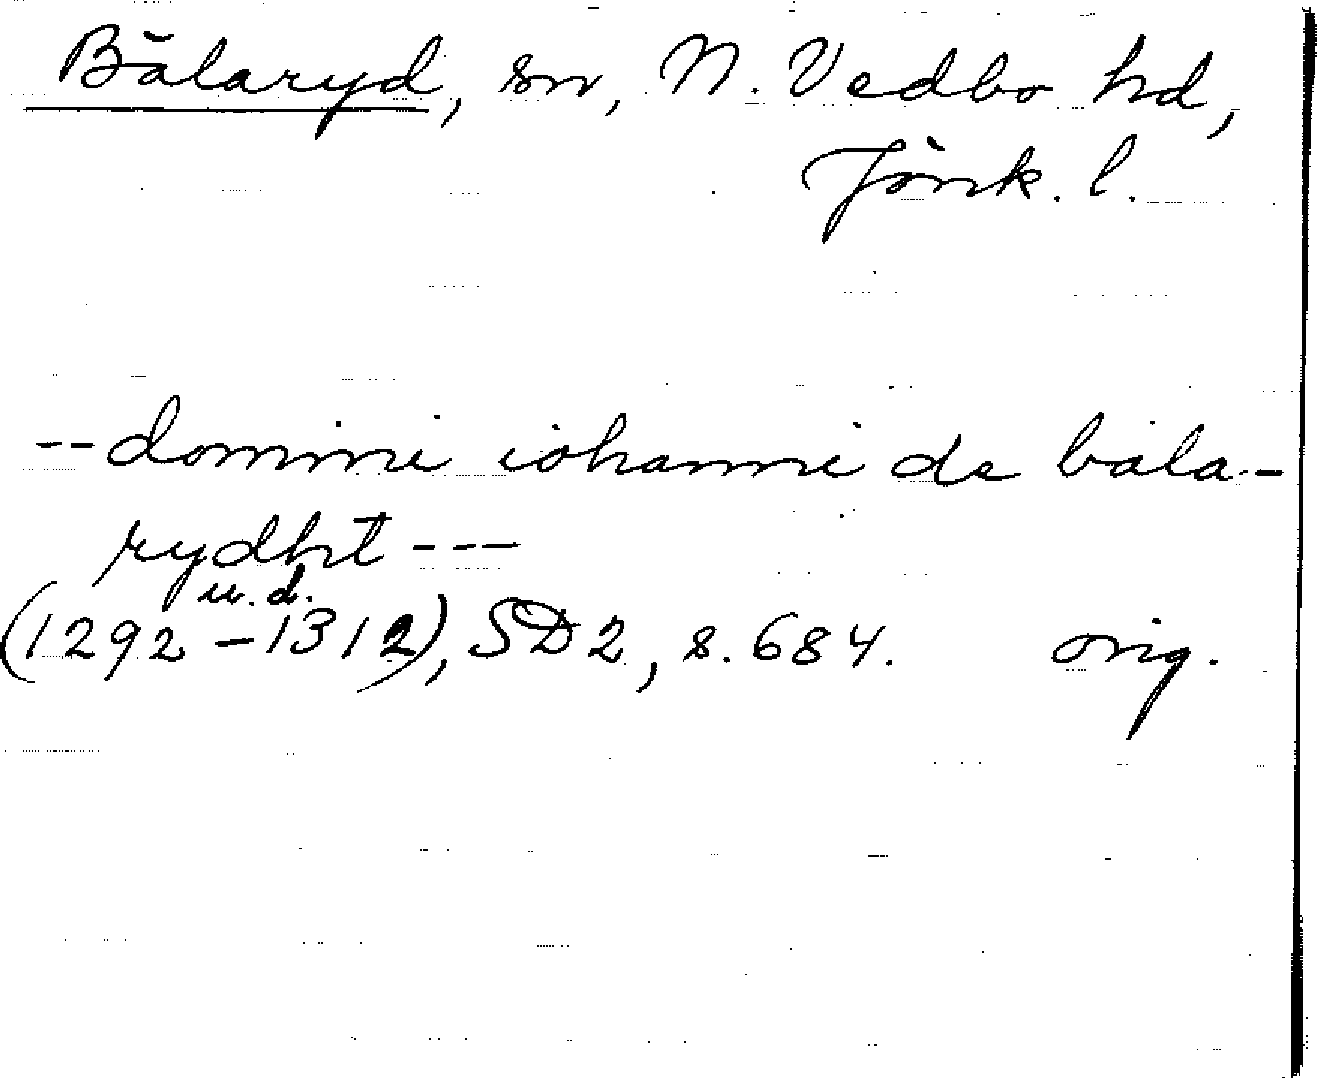 Bälaryd, sn, N. Vedbo hd,
Jönk. l.
-- domini iohanni de bala-
rydht ---
u. d.
(1292 - 1312), SD 2, s. 684. orig.